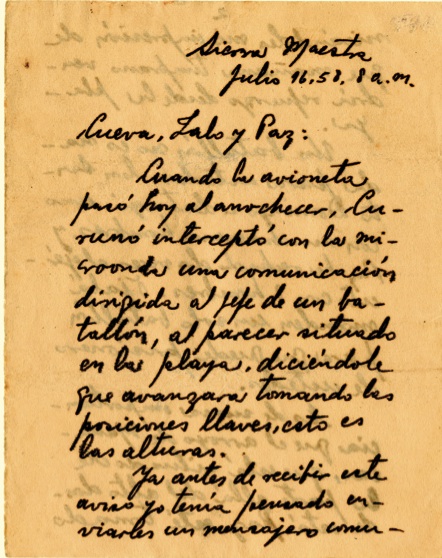 Sierra Maestra
Julio 16, 58, 8 a.m.
Cueva, Lalo y Paz:
Cuando la avioneta
pasó hoy al anochecer, Cu-
runó interceptó con la mi-
croonda una comunicación
dirigida al jefe de un ba-
tallón, al parecer situado
en la playa, diciéndole
que avanzara tomando las
posiciones llaves, esto es
las alturas.
Ya antes de recibir este
aviso yo tenía pensado en-
viarles un mensajero comu-